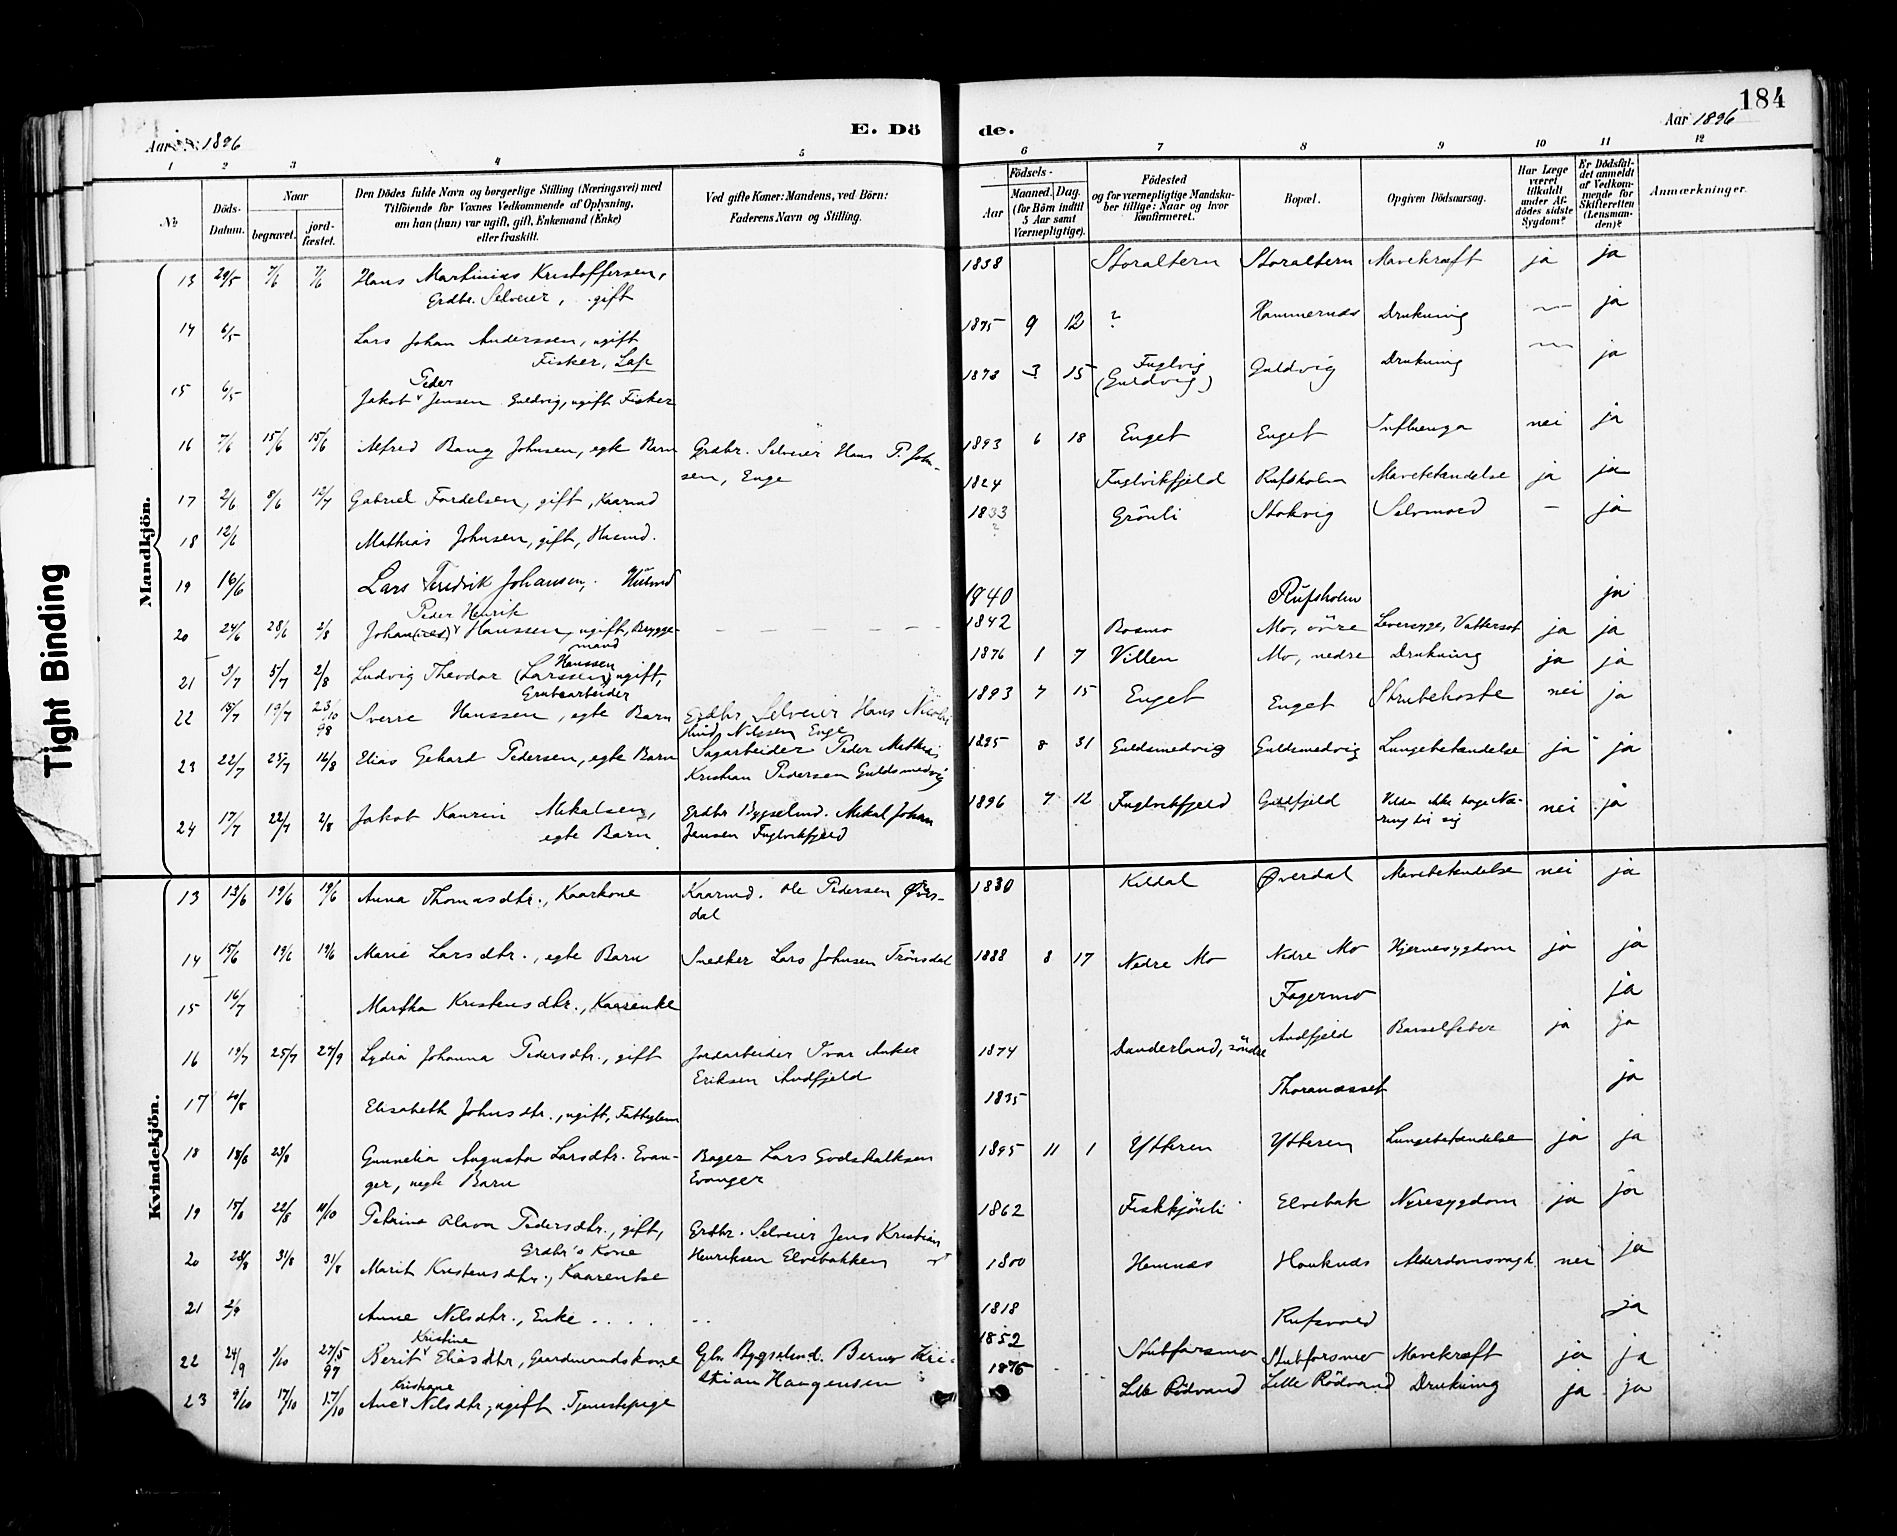 184
Aar 1896
E. Dö
de.
Aar 1896
1 2 3 4 5 6 7 8 9 10 11 12
No
Döds-Datum.
Naar
begravet. jord-fæstet.
Den Dödes fulde Navn og borgerlige Stilling (Næringsvei) med
Tilföiende for Voxnes Vedkommende af Oplysning,
om han (hun) var ugift, gift, Enkemand (Enke)
eller fraskilt.
Ved gifte Koner: Mandens, ved Börn:
Faderens Navn og Stilling.
Födsels-
Aar
Maaned. Dag.
(for Börn indtil
5 Aar samt
Værnepligtige).
Födested
og for værnepligtige Mandska-
ber tillige: Naar og hvor
konfirmeret.
Bopæl.
Opgiven Dödsaarsag.
Har Læge
været
tilkaldt
under Af-
dödes sidste
Sygdom?
Er Dödsfal-
det anmeldt
af Vedkom-
mende for
Skifteretten
(Lensman-
den)?
Anmærkninger.
Tight Binding
Mandkjön.
13 29/5 7/6 7/6 Hans Martinius Kristoffersen, 1838 Storaltern Storaltern Mavekræft ja ja
Grdbr. Selveier, gift
14 6/5 Lars Johan Anderssen, ugift 1875 9 12 ? Hammernæs Drukning — ja
Fisker, Lap
15 6/5 Jakob Peder Jensen Guldvig, ugift Fisker 1873 3 15 Fuglvig (Guldvig) Guldvig Drukning — ja
16 7/6 15/6 15/6 Alfred Bang Johnsen, egte Barn Grdbr. Selveier Hans P. John- 1893 6 18 Enget Enget Influenza nei ja
sen, Enge
17 2/6 8/6 12/7 Gabriel Fordelsen, gift, Kaarmd 1824 Fuglvikfjeld Rufsholm Mavebetændelse ja ja
18 12/6 Mathias Johnsen, gift, Husmd. 1833 ? Grönli Stokvig Selvmord — ja
19 16/6 Lars Fredrik Johansen, Husmd 1840 Rufsholm ja
Peder Henrik
20 24/6 28/6 2/8 Johan(nes) Hanssen, ugift, Brygge- 1842 Bosmo Mo, övre Leversyge, Vattersot ja ja
mand
21 3/7 5/7 2/8 Ludvig Theodor (Larssen) Hanssen ugift, 1876 1 7 Villen Mo, nedre Drukning ja ja
Grubearbeider
22 15/7 19/7 23/10 98 Sverre Hanssen, egte Barn Grdbr Selveier Hans Nicolai 1893 7 15 Enget Enget Strubehoste nei ja
Hind Nilssen Enge
23 22/7 25/7 16/8 Elias Gehard Pedersen, egte Barn Sagarbeider Peder Mathias 1895 8 31 Guldsmedvig Guldsmedvig Lungebetændelse ja ja
Kristian Pedersen Guldsmedvig
24 17/7 22/7 2/8 Jakob Kaurin Mikalsen, Grdbr Bygselmd. Mikal Johan 1896 7 12 Fuglvikfjeld Vilde ikke tage Næ- nei ja
egte Barn Jensen Fuglvikfjeld ring til sig
Kvindekjön.
13 13/6 19/6 19/6 Anna Thomasdtr., Kaarkone Kaarmd. Ole Pedersen Øver- 1830 Kildal Øverdal Mavebetændelse nei ja
dal
14 15/6 19/6 19/6 Marie Larsdtr., egte Barn Snedker Lars Johnsen Trönsdal 1888 8 17 Nedre Mo Nedre Mo Hjernesygdom ja ja
15 16/7 Martha Kristensdtr., Kaarenke Fagermo ja
16 19/7 25/7 27/9 Lydia Johanna Pedersdtr., gift Jordarbeider Ivar Anker 1874 Dunderland, söndre Andfjeld Barselfeber ja ja
Eriksen Andfjeld
17 4/8 Elisabeth Johnsdtr., ugift, Fattiglem 1835 Thoranæsset ja
18 18/8 23/8 Gunnelia Augusta Larsdtr. Evan- Bager Lars Godskalksen 1895 11 1 Ytteren Ytteren Lungebetændelse ja ja
ger, uegte Barn Evanger
19 15/8 22/8 10/10 Petrine Olava Pedersdtr., gift, Grdbr. Selveier Jens Kristian 1862 Fiskkjönli Elvebak Nyresygdom ja ja
Grdbr's Kone Henriksen Elvebakken
20 28/8 31/8 31/8 Marit Kristensdtr., Kaarenke 1800 Hemnæs Hauknæs Alderdomsvagh. nei ja
21 2/9 Anne Nilsdtr., Enke 1818 Rufsvold ja
22 24/9 2/10 27/5 97 Berit Kristine Eliasdtr, Gaardmandskone Gbr. Bygselmd. Bernt Kri- 1852 Stubforsmo Stubforsmo Mavekræft ja ja
stian Haagensen
23 9/10 17/10 17/10 Ane Kristiane Nilsdtr, ugift Tjenestepige 1875 Lille Rödvand Lille Rödvand Drukning ja ja